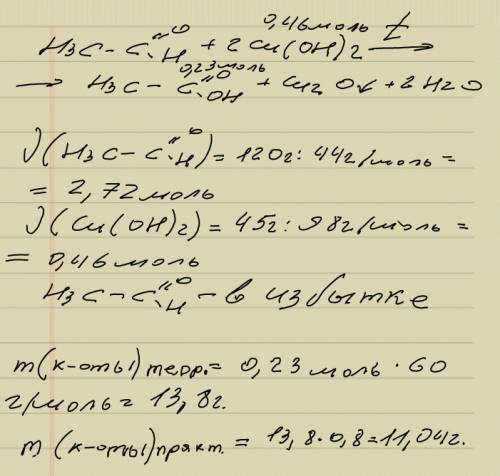 0,46 моль
H₃C – C(=O)H + 2 Cu(OH)₂ —t→
0,23 моль
→ H₃C – C(=O)OH + Cu₂O↓ + 2 H₂O
ν (H₃C – C(=O)H) = 120г : 44г/моль =
= 2,72 моль
ν (Cu(OH)₂) = 45г : 98г/моль =
= 0,46 моль
H₃C – C(=O)H – в избытке
m (к-оты) теор. = 0,23 моль · 60
г/моль = 13,8г.
m (к-оты) практ. = 13,8·0,8=11,04г.